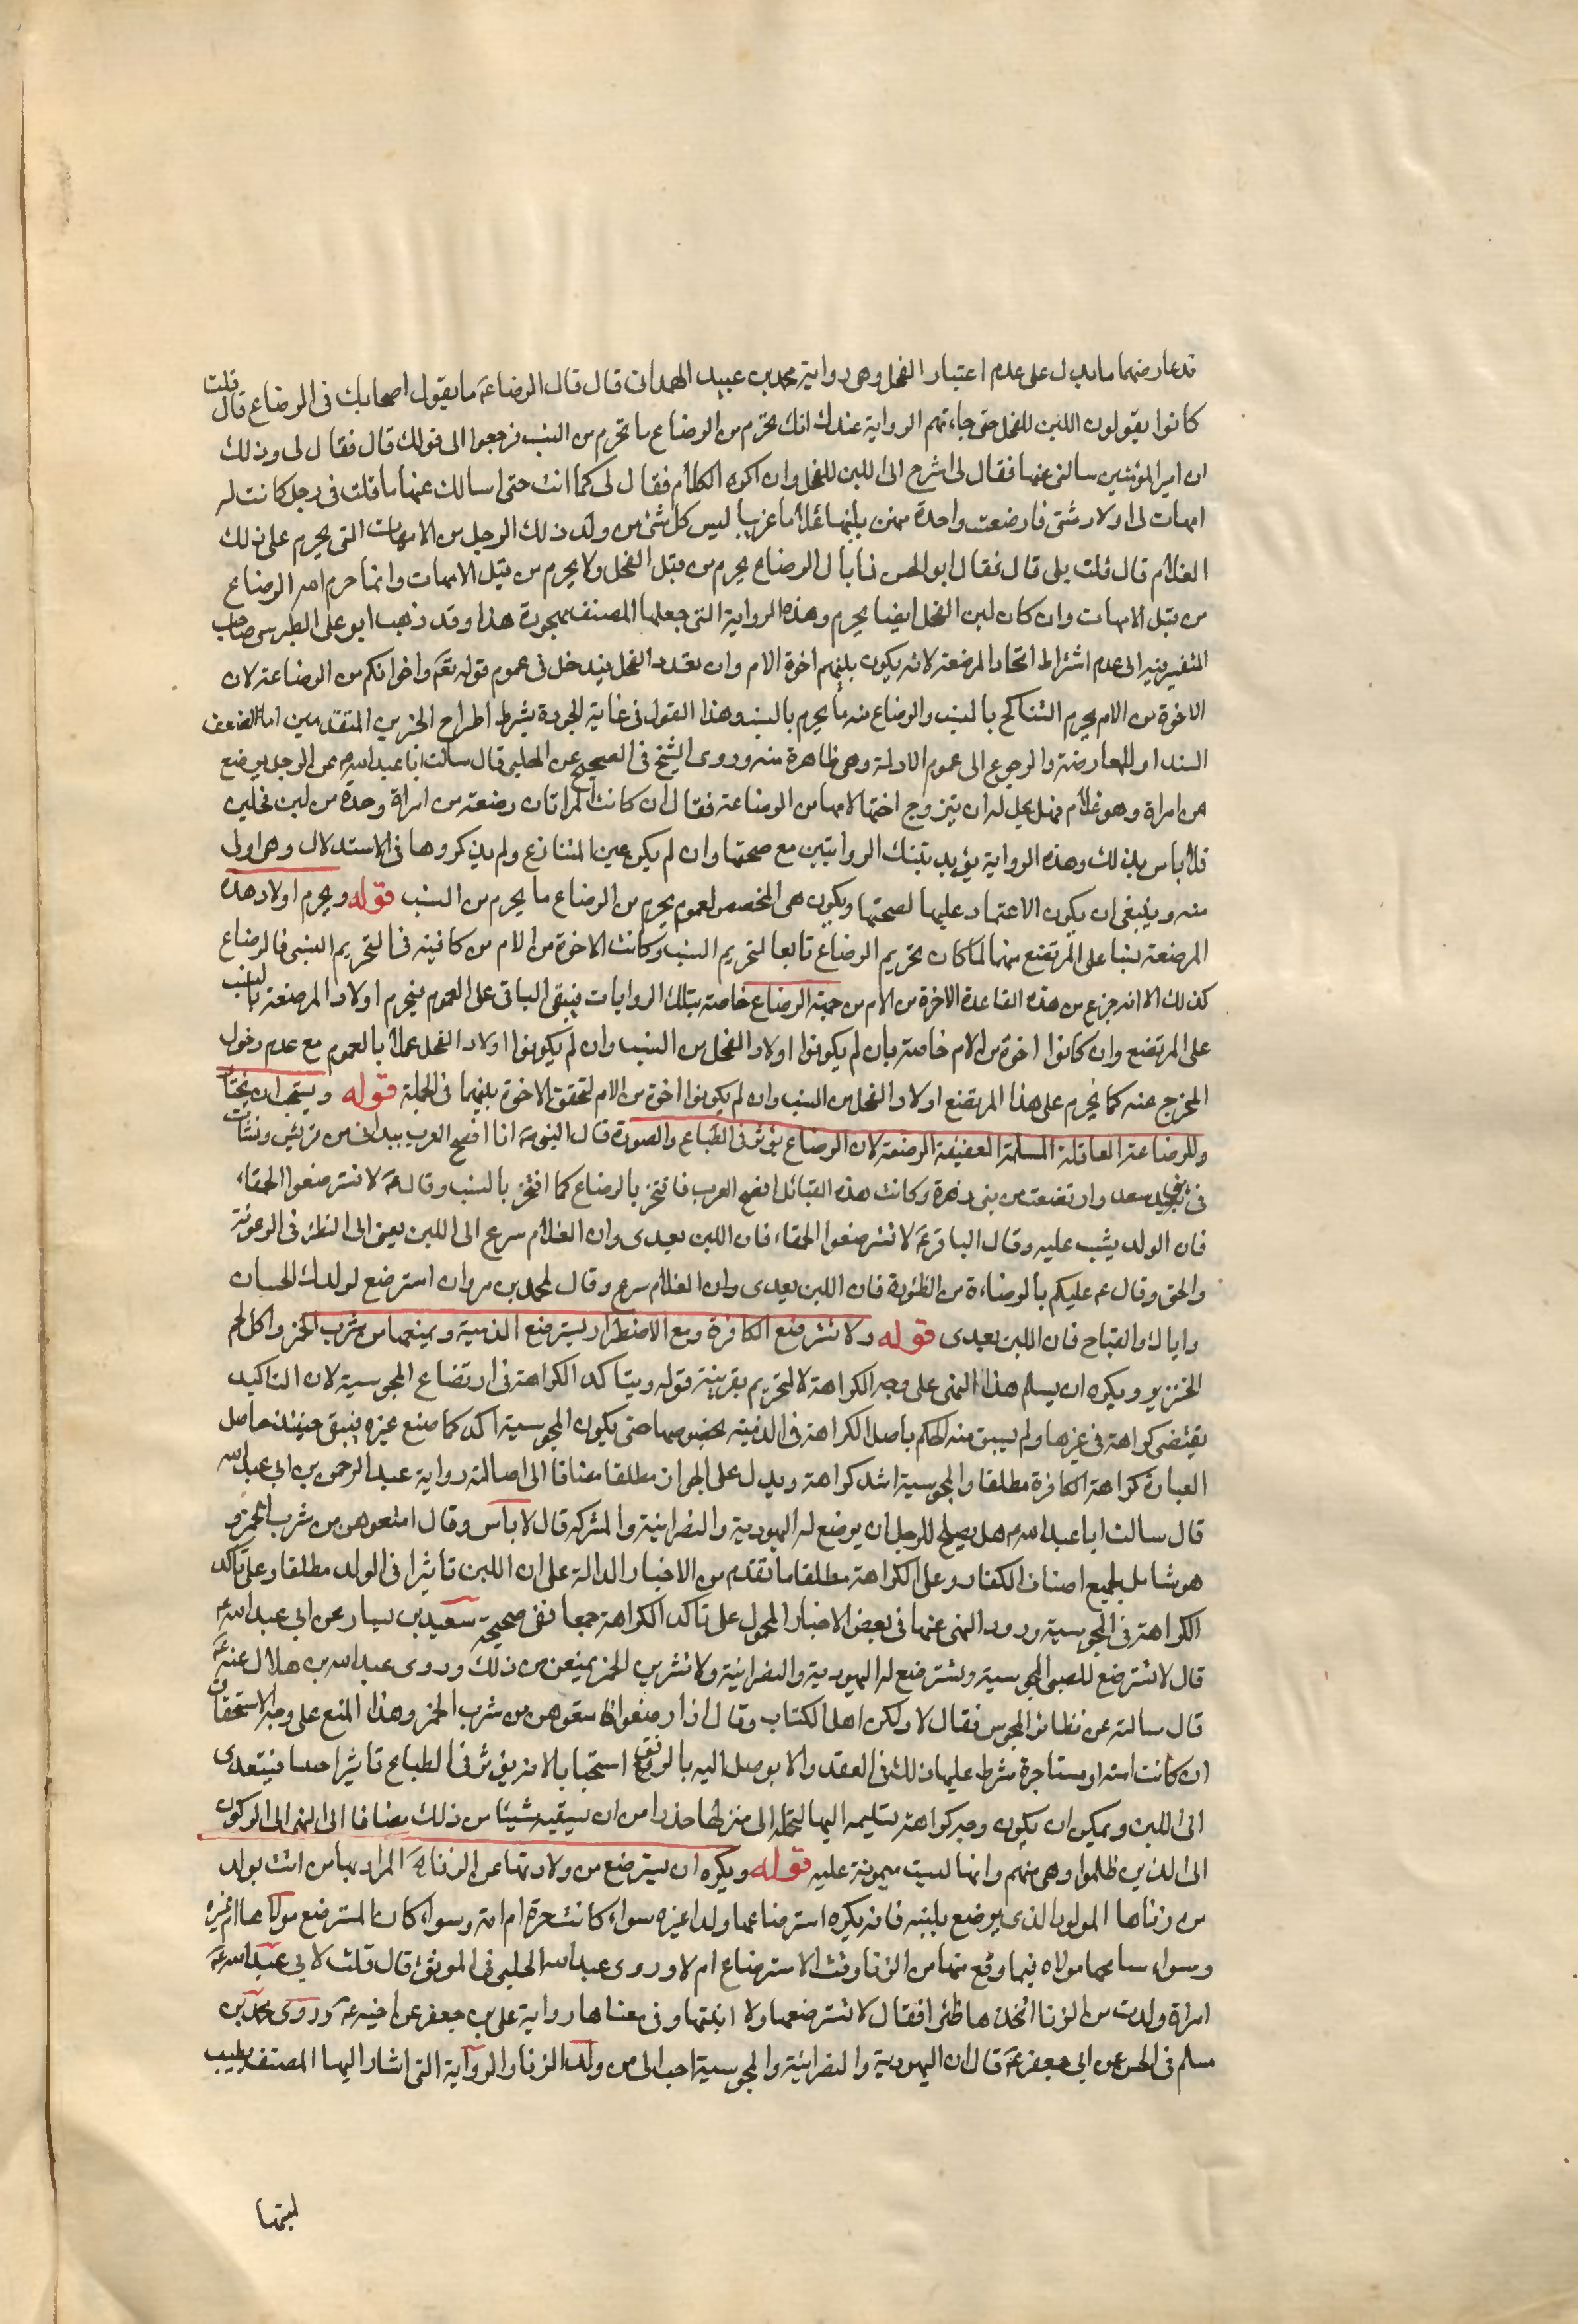 قد عارضهما ما يدل على عدم اعتبار الفحل وهى رواية محمد بن عبيد الهمدانى قال قال الرضا عۤ ما يقول اصحابك فى الرضاع قال قلت
كانوا يقولون اللبن للفحل حتى جاءتهم الرواية عنك انك تحرم من الرضاع ما تحرم من النسب فرجعوا الى قولك قال فقال لى وذلك
ان امير المؤمنين سالنى عنها فقال لى اشرح الى اللبن للفحل وان اكره الكلام فقال لى كما انت حتى اسالك عنها ما قلت فى رجل كانت له
امهات اولاد شتى فارضعت واحدة منهن بلبنها غلاما غريبا ليس كل شئ من ولد ذلك الرجل من الامهات التى يحرم على ذلك
الغلام قال قلت بلى قال فقال ابو الحسن فما بال الرضاع يحرم من قبل الفحل ولا يحرم من قبل الامهات وانما حرم الله الرضاع
من قبل الامهات وان كان لبن الفحل ايضا يحرم وهذه الرواية التى جعلها المصنف مهجورة هذا وقد ذهب ابو على الطبرسى صاحب
التفسير فيه الى عدم اشتراط اتحاد المرضعة لانه يكون بينهم اخوة الام وان تعدد الفحل فيدخل فى عموم قوله تعۤ واخواتكم من الرضاعة لان
الاخوة من الام يحرم التناكح بالنسب والرضاع منه ما يحرم بالنسب وهذا القول فى غاية الجودة بشرط اطراح الخبرين المتقدمين اما لضعف
السند او للمعارضة والرجوع الى عموم الادلة وهى ظاهرة منه وروى الشيخ فى الصحيح عن الحلبى قال سالت ابا عبد الله عۤ عن الرجل يرضع
من امراة وهو غلام فهل يحل له ان يتزوج اختها لامها من الرضاعة فقال ان كانت المراتان رضعتا من امراة واحدة من لبن فحلين
فلا باس بذلك وهذه الرواية يؤيد بتينك الروايتين مع صحتها وان لم يكن عين المتنازع ولم يذكروها فى الاستدلال وهى اولى
منه وينبغى ان يكون الاعتماد عليها لصحتها ويكون هى المخصص لعموم يحرم من الرضاع ما يحرم من النسب قوله ويحرم اولاد هذه
المرضعة نسبا على المرتضع منها لما كان تحريم الرضاع تابعا لتحريم النسب وكانت الاخوة من الام كافية فى التحريم النسبى فالرضاع
كذلك الا انه خرج من هذه القاعدة الاخوة من الام من جهة الرضاع خاصة بتلك الروايات فيبقى الباقى على العموم فيحرم اولاد المرضعة بالنسب
على المرتضع وان كانوا اخوة من الام خاصة بان لم يكونوا اولاد الفحل من النسب وان لم يكونوا اولاد الفحل عملا بالعموم مع عدم دخول
المخرج عنه كما يحرم على هذا المرتضع اولاد الفحل من النسب وان لم يكونوا اخوة من الام لتحقق الاخوة بينهما فى الجملة قوله ويستحب ان يختار
وللرضاعة العاقلة المسلمة العفيفة الوضئة لان الرضاع يؤثر فى الطباع والصورة قال النبى صۤ انا افصح العرب بيد انى من قريش ونشأت
فى بنى سعد وارتضعت من بنى زهرة وكانت هذه القبائل افصح العرب فافتخر بالرضاع كما افتخر بالنسب وقال عۤ لا تسترضعوا الحمقاء
فان الولد يشب عليه وقال الباقر عۤ لا تسترضعوا الحمقاء فان اللبن يعدى وان الغلام ينزع الى اللبن يعنى الى الظئر فى الرعونة
والحمق وقال عۤ عليكم بالوضاءة من الظئورة فان اللبن يعدى وان الغلام ينزع وقال لمحمد بن مروان استرضع لولدك الحسان
واياك والقباح فان اللبن يعدى قوله ولا تسترضع الكافرة ومع الاضطرار يسترضع الذمية ويمنعها من شرب الخمر واكل لحم
الخنزير ويكره ان يسلم هذا النهى على وجه الكراهة لا التحريم بقرينة قوله ويتاكد الكراهة فى ارتضاع المجوسية لان التاكيد
يقتضى كراهة فى غيرها ولم يسبق منه الحكم باصل الكراهة فى الذمية بخصوصها حتى يكون المجوسية اكد كما صنع غيره فيبقى حينئذ حاصل
العبارة كراهة الكافرة مطلقا والمجوسية اشد كراهة ويدل على الجواز مطلقا مضافا الى اصالته رواية عبد الرحمن بن ابى عبد الله
قال سالت ابا عبد الله عۤ هل يصلح للرجل ان يرضع له اليهودية والنصرانية والمشركة قال لا باس وقال امنعوهن من شرب الخمر و
هو شامل لجميع اصناف الكفار وعلى الكراهة مطلقا ما تقدم من الاخبار الدالة على ان اللبن تاثيرا فى الولد مطلقا وعلى تاكد
الكراهة فى المجوسية ورود النهى عنها فى بعض الاخبار المحمول على تاكد الكراهة جمعا ففى صحيحة سعيد بن يسار عن ابى عبد الله عۤ
قال لا تسترضع للصبى المجوسية وتسترضع له اليهودية والنصرانية ولا تشربن الخمر يمنعن من ذلك وروى عبد الله بن هلال عنه عۤ
قال سالته عن نظائر المجوس فقال لا ولكن اهل الكتاب وقال اذا رضعوا لكم فامنعوهن من شرب الخمر وهذا المنع على وجه الاستحقاق
ان كانت امته او مستاجرة شرط عليها ذلك فى العقد والا يوصل اليه بالرفق استحبابا لانه يؤثر فى الطباع تاثيرا حسا فيتعدى
الى اللبن ويمكن ان يكون وجه كراهة تسليمه اليها لتحمله الى منزلها حذرا من ان يسقيه شيئا من ذلك مضافا الى النهى الى الركون
الى الذين ظلموا وهى منهم وانها ليست ميمونة عليه قوله ويكره ان يسترضع من ولادتها عن الزنا المراد بها من اتت بولد
من زناها المولود الذى يرضع بلبنه فانه يكره استرضاعها ولدا غيره سواء كانت حرة ام امة وسواء كان المسترضع مولاها ام غيره
وسواء سامحها مولاه فيما وقع منها من الزنا وقت الاسترضاع ام لا وروى عبد الله الحلبى فى الموثق قال قلت لابى عبد الله عۤ
امراة ولدت من الزنا اتخذها ظئرا فقال لا تسترضعها ولا ابنتها وفى معناها رواية على بن جعفر عن اخيه عۤ وروى محمد بن
مسلم فى الحسن عن ابى جعفر عۤ قال ان اليهودية والنصرانية والمجوسية احب الى من ولد الزنا والرواية التى اشار اليها المصنف بطيب
لبنها